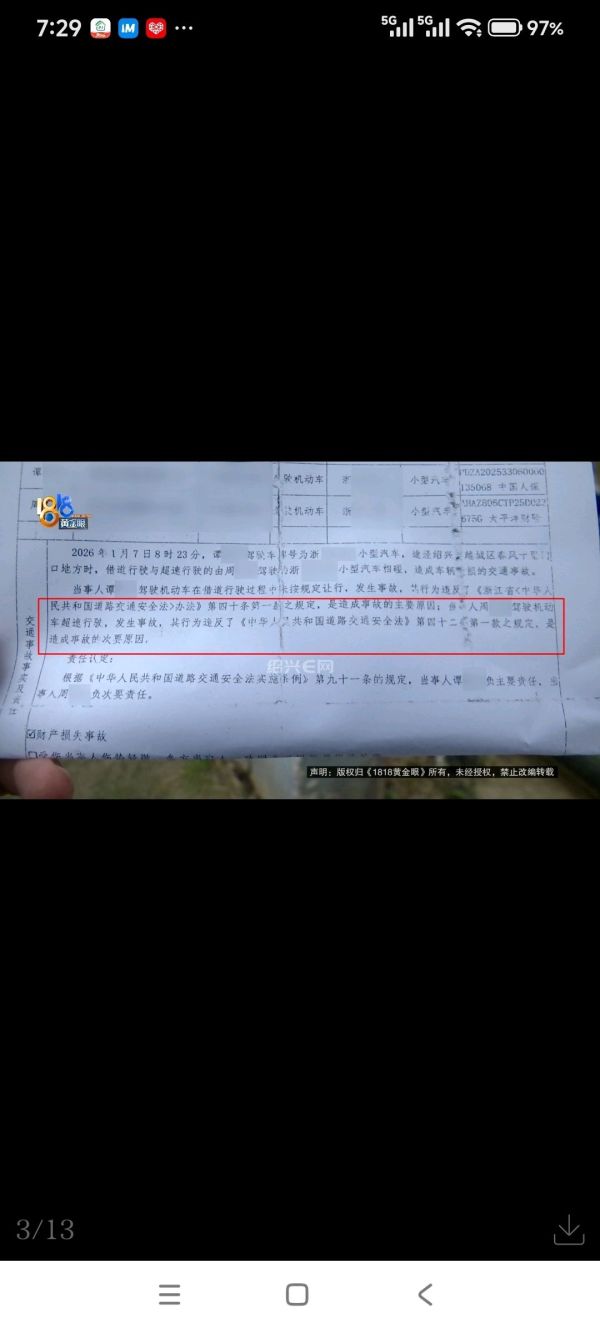 7:29
iM
5G 5G 97%
谭
驶机动车 浙 小型汽车
135068 中国人保
驶机动车 浙 小型汽车
675G 太平洋财险
1818
黄金眼
2026年1月7日8时23分,谭 驾驶车牌号为浙 小型汽车,途经绍兴 越城区春风
口地方时,借道行驶与超速行驶的由周 驾驶为浙 小型汽车相碰,造成车辆 损的交通事故。
当事人谭 驾驶机动车在借道行驶过程中未按规定让行,发生事故,其行为违反了《浙江省<中华人
民共和国道路交通安全法>办法》第四十条第一 之规定,是造成事故的主要原因;当 人周 驾驶机动
车超速行驶,发生事故,其行为违反了《中华人民共和国道路交通安全法》第四十二 第一款之规定,是
造成事故的次要原因。
交通事故事实及
绍兴E网
责任认定:
根据《中华人民共和国道路交通安全法实施条例》第九十一条的规定,当事人谭 负主要责任,当
事人周 负次要责任。
☑财产损失事故
声明:版权归《1818黄金眼》所有,未经授权,禁止改编转载
3/13